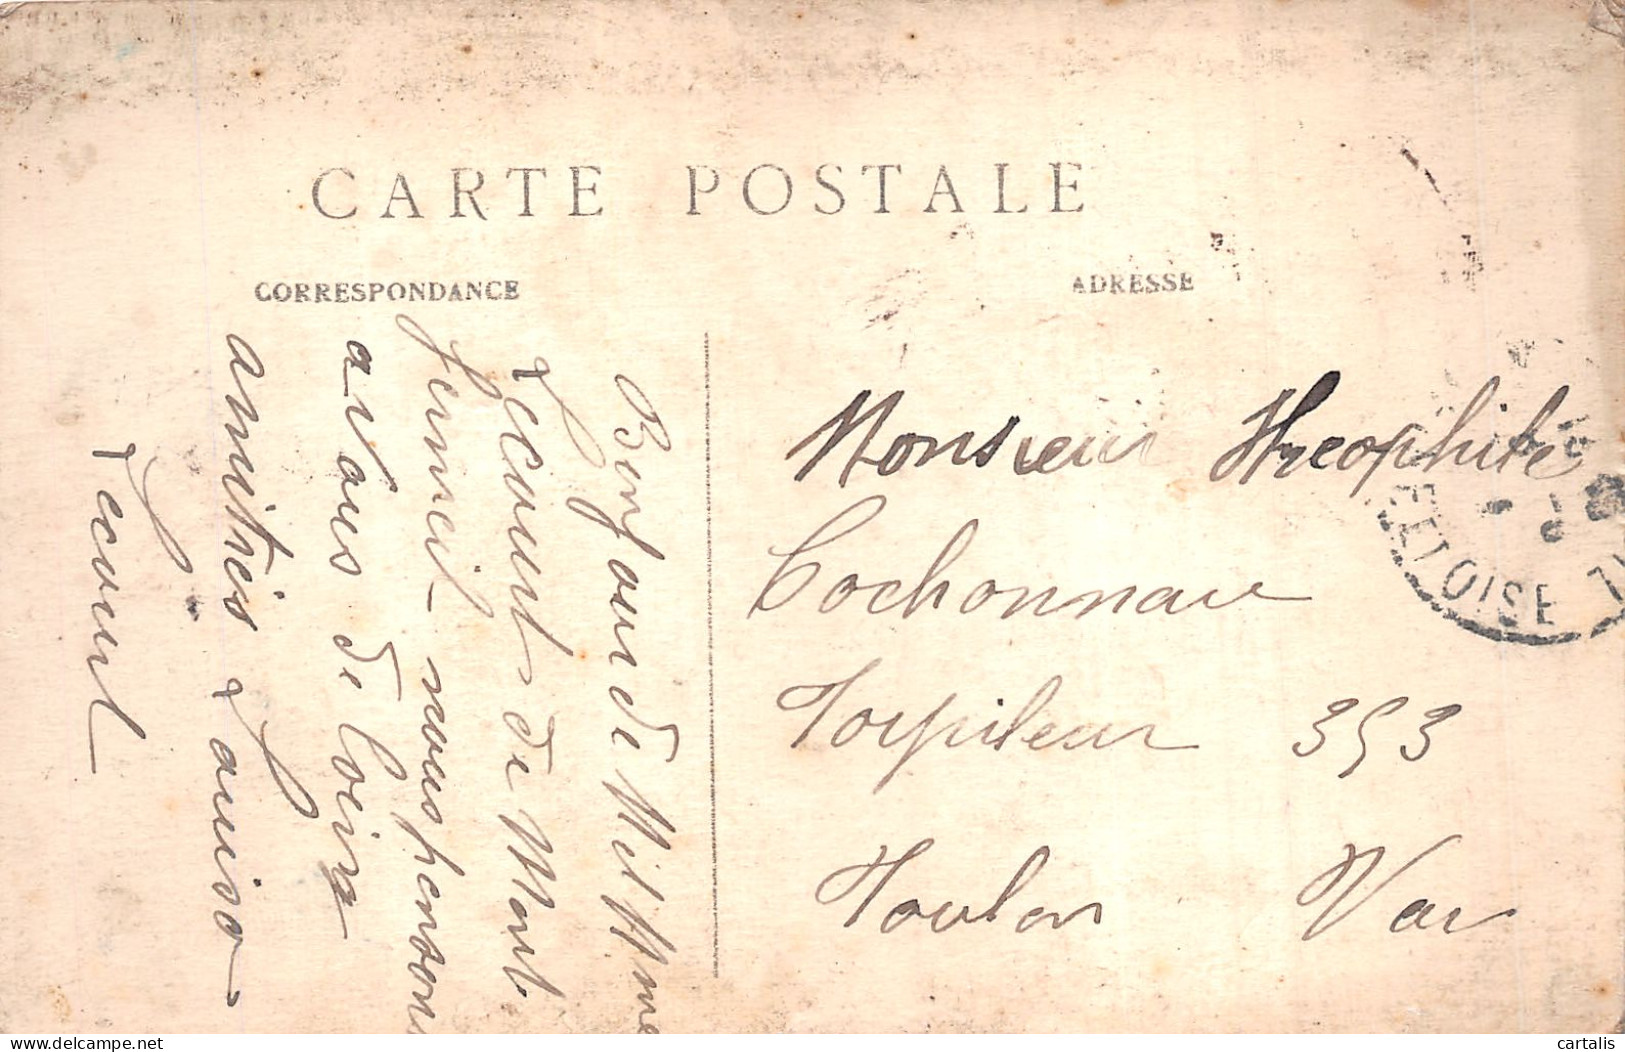 CARTE POSTALE
CORRESPONDANCE
ADRESSE
Bonjour de M et Mme
Lecourt de Mont
fermeil nous pensons
a Vous de Loing
amities Louiso
Lecourt
Monsieur Theophile
Cochonnau
Torpileur 353
Toulon Var
ET OISE
delcampe.net
cartalis